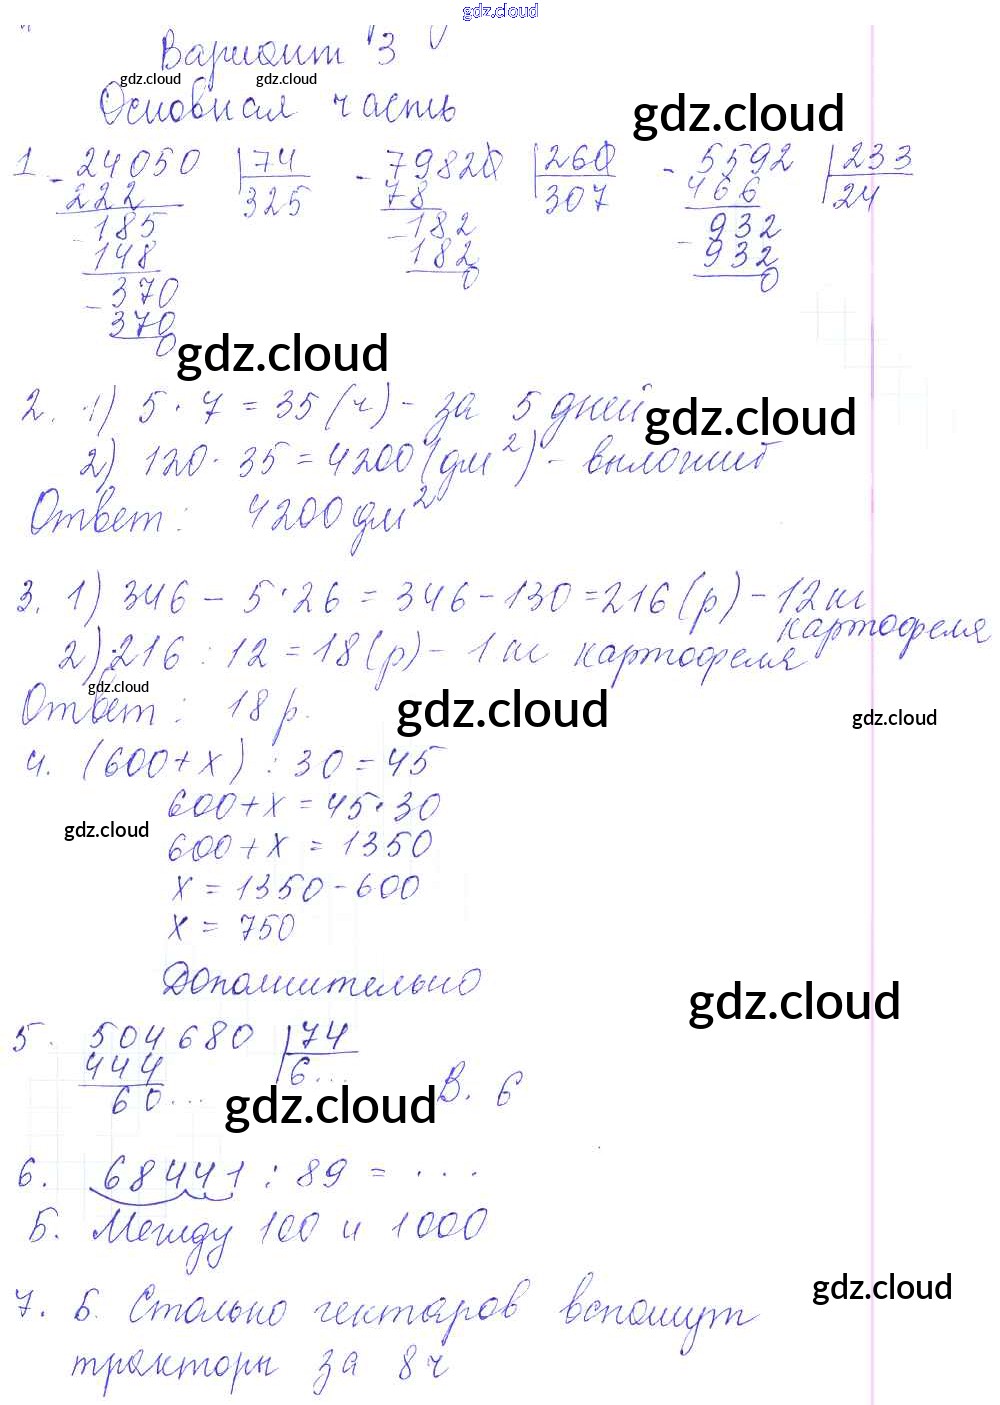 gdz.cloud
Вариант 3
gdz.cloud gdz.cloud
Основная часть
gdz.cloud
1 - 24050 | 74 - 79820 | 260 - 5592 | 233
222 325 78 307 466 24
- 185 - 182 932
148 182 - 932
- 370 0 0
370
0
gdz.cloud
2. 1) 5 · 7 = 35 (ч) - за 5 дней
gdz.cloud
2) 120 · 35 = 4200 (дм²) - выложит
Ответ: 4200 дм²
3. 1) 346 - 5 · 26 = 346 - 130 = 216 (р) - 12 кг
картофеля
2) 216 : 12 = 18 (р) - 1 кг картофеля
gdz.cloud
Ответ: 18 р.
gdz.cloud
gdz.cloud
4. (600 + х) : 30 = 45
600 + х = 45 · 30
gdz.cloud
600 + х = 1350
х = 1350 - 600
х = 750
Дополнительно
gdz.cloud
5. 504 680 | 74
444 6...
60... В. 6
gdz.cloud
6. 68441 : 89 = ...
Б. Между 100 и 1000
gdz.cloud
7. Б. Столько гектаров вспашут
тракторы за 8 ч